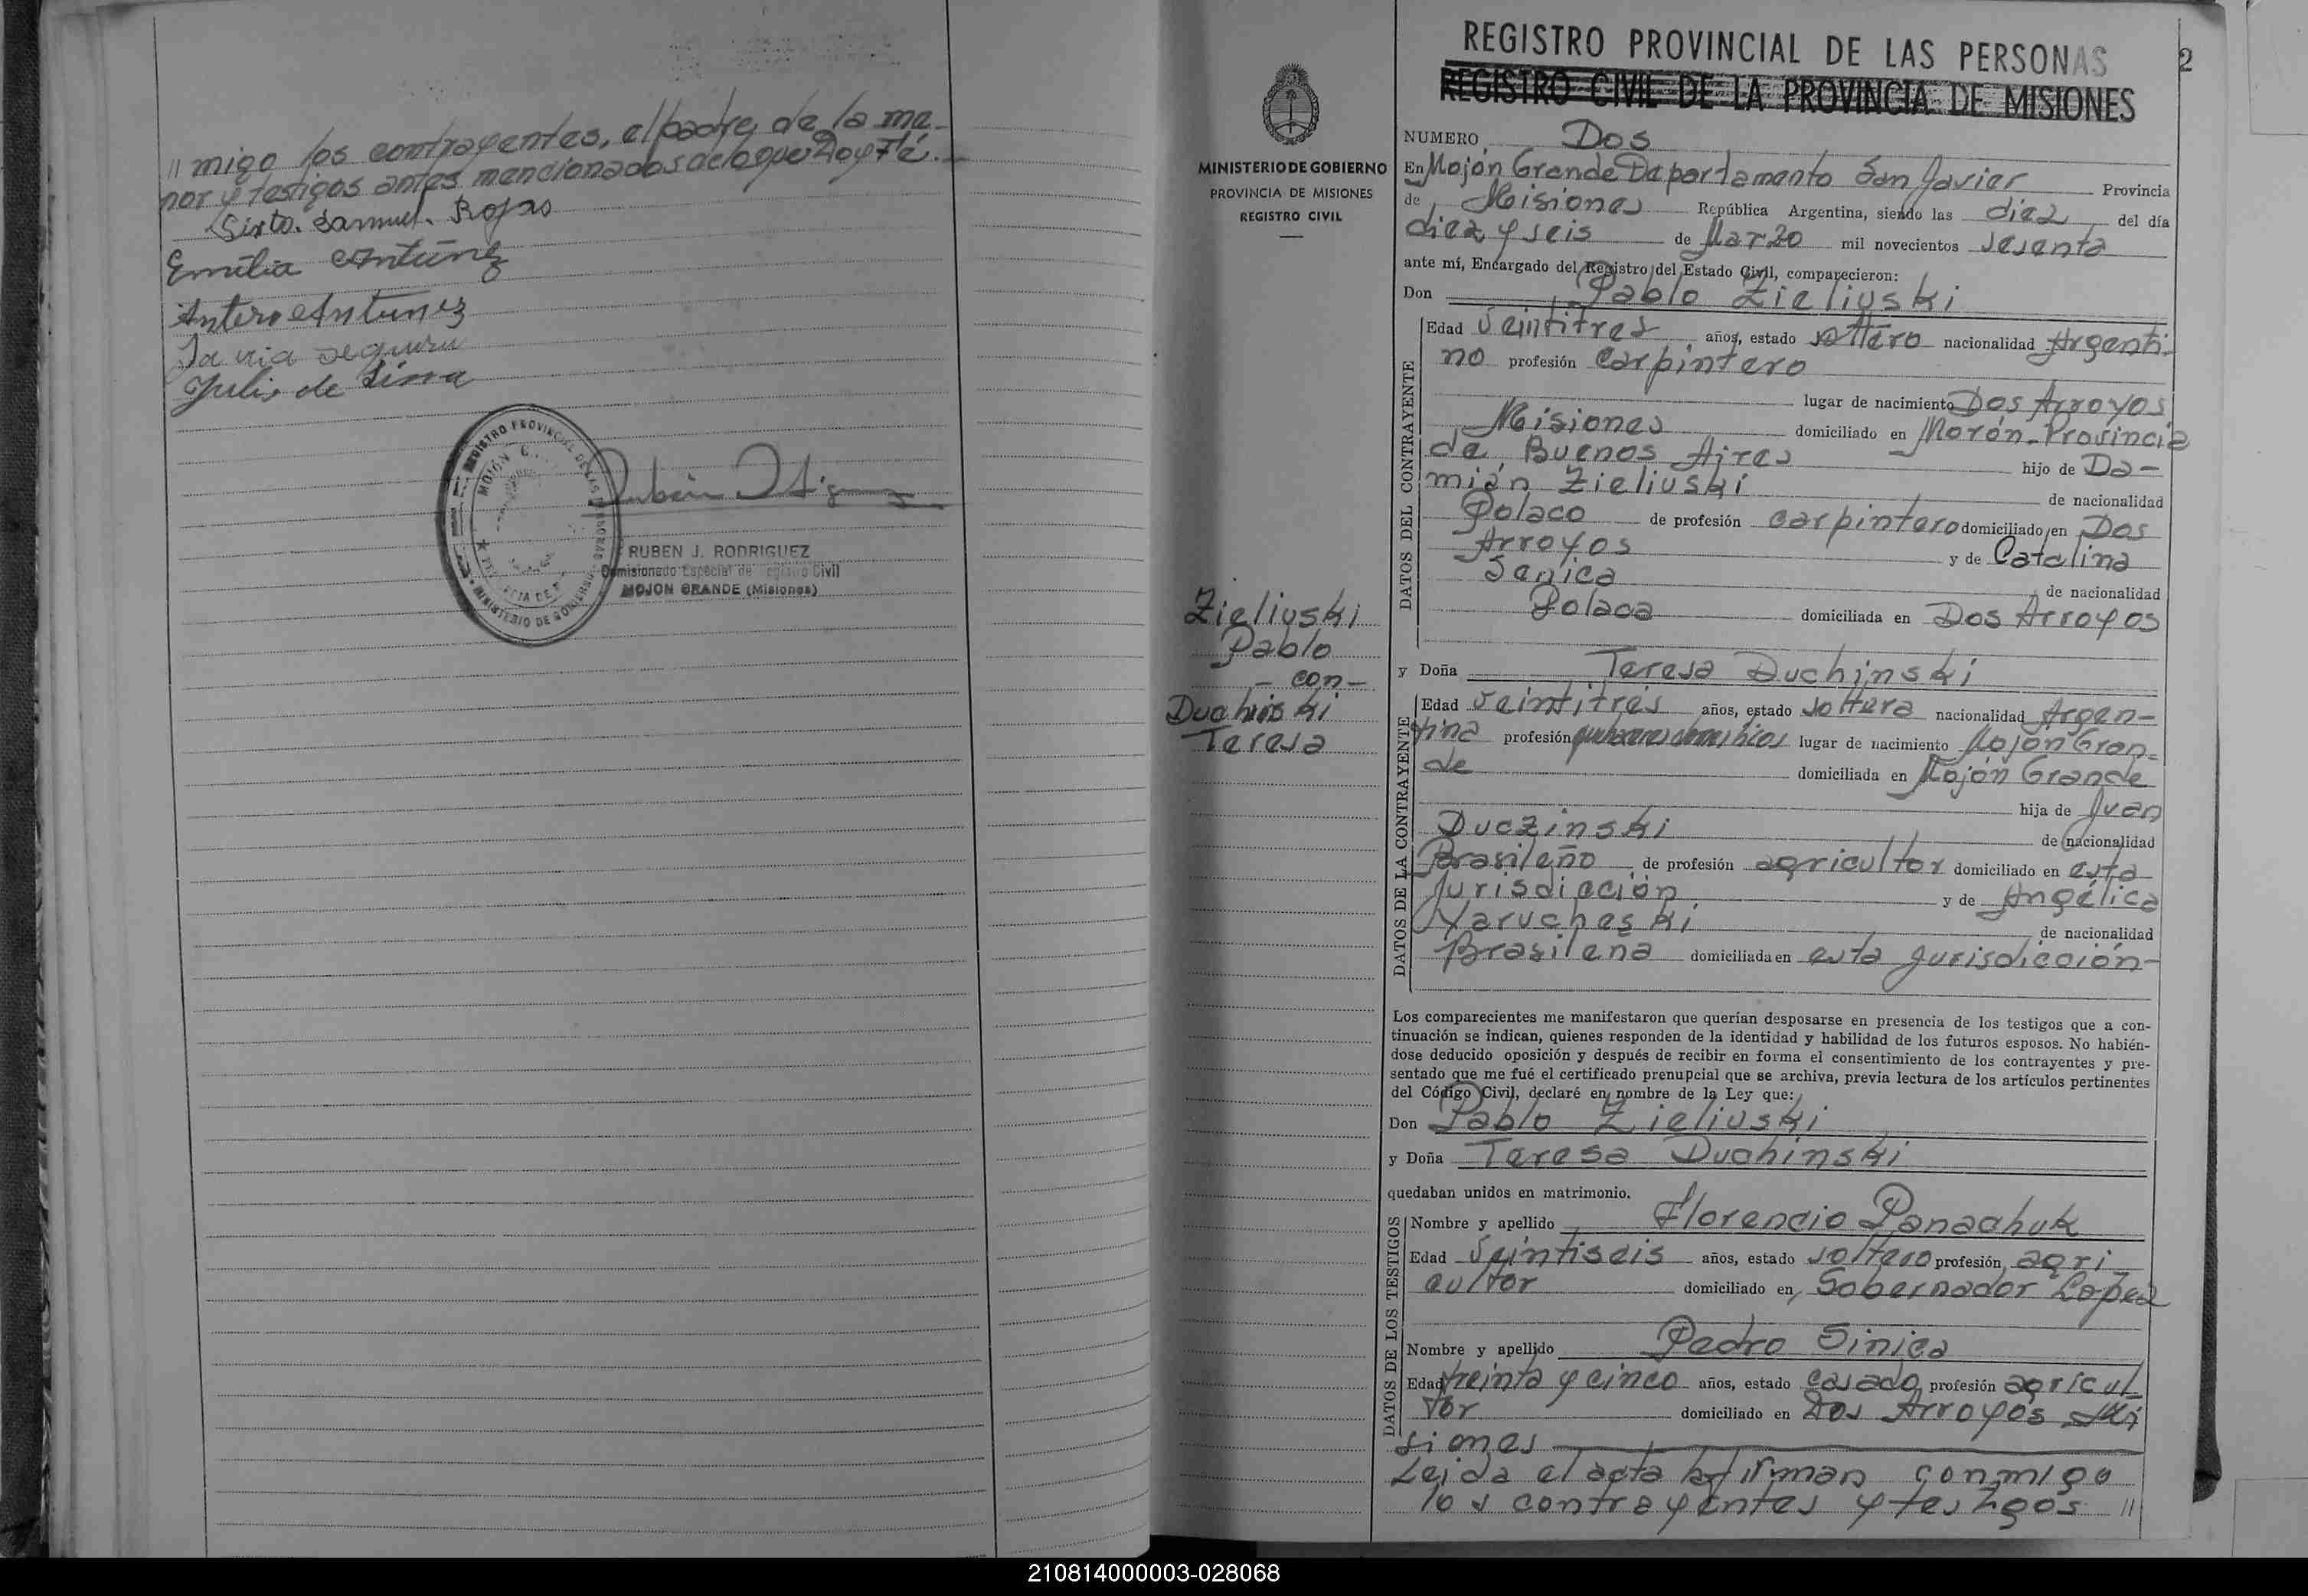 // migo los contrayentes, el padre de la me-
nor y testigos antes mencionados de lo que Doy Fé.-
Sixto. Samuel. Rojas
Emilia Antúnez
Antero Antunez
Julio de Lima
RUBEN J. RODRIGUEZ
Comisionado Especial de Registro Civil
MOJON GRANDE (Misiones)
REGISTRO PROVINCIAL DE LAS PERSONAS
2
REGISTRO CIVIL DE LA PROVINCIA DE MISIONES
MINISTERIO DE GOBIERNO
PROVINCIA DE MISIONES
REGISTRO CIVIL
Zieliuski
Pablo
- con -
Duchinski
Teresa
NUMERO Dos
En Mojón Grande Departamento San Javier Provincia
de Misiones República Argentina, siendo las diez del día
diez y seis de Marzo mil novecientos sesenta
ante mí, Encargado del Registro del Estado Civil, comparecieron:
Don Pablo Zieliuski
DATOS DEL CONTRAYENTE
Edad veintitres años, estado soltero nacionalidad Argenti-
no profesión carpintero
lugar de nacimiento Dos Arroyos
Misiones domiciliado en Morón-Provincia
de Buenos Aires hijo de Da-
mián Zieliuski de nacionalidad
Polaco de profesión carpintero domiciliado en Dos
Arroyos y de Catalina
Senica de nacionalidad
Polaca domiciliada en Dos Arroyos
y Doña Teresa Duchinski
DATOS DE LA CONTRAYENTE
Edad veintitrés años, estado soltera nacionalidad Argen-
tina profesión quehaceres domésticos lugar de nacimiento Mojón Gran-
de domiciliada en Mojón Grande
hija de Juan
Duczinski de nacionalidad
Brasileño de profesión agricultor domiciliado en esta
Jurisdicción y de Angélica
Yarucheski de nacionalidad
Brasileña domiciliada en esta jurisdicción-
Los comparecientes me manifestaron que querían desposarse en presencia de los testigos que a con-
tinuación se indican, quienes responden de la identidad y habilidad de los futuros esposos. No habién-
dose deducido oposición y después de recibir en forma el consentimiento de los contrayentes y pre-
sentado que me fué el certificado prenupcial que se archiva, previa lectura de los artículos pertinentes
del Código Civil, declaré en nombre de la Ley que:
Don Pablo Zieliuski
y Doña Teresa Duchinski
quedaban unidos en matrimonio.
DATOS DE LOS TESTIGOS
Nombre y apellido Florencio Panachuk
Edad veintiseis años, estado soltero profesión agri
cultor domiciliado en Gobernador Lopez
Nombre y apellido Pedro Sinica
Edad treinta y cinco años, estado casado profesión agricul-
tor domiciliado en Dos Arroyos Mi
siones
Leida el acta la firman conmigo
los contrayentes y testigos //
210814000003-028068